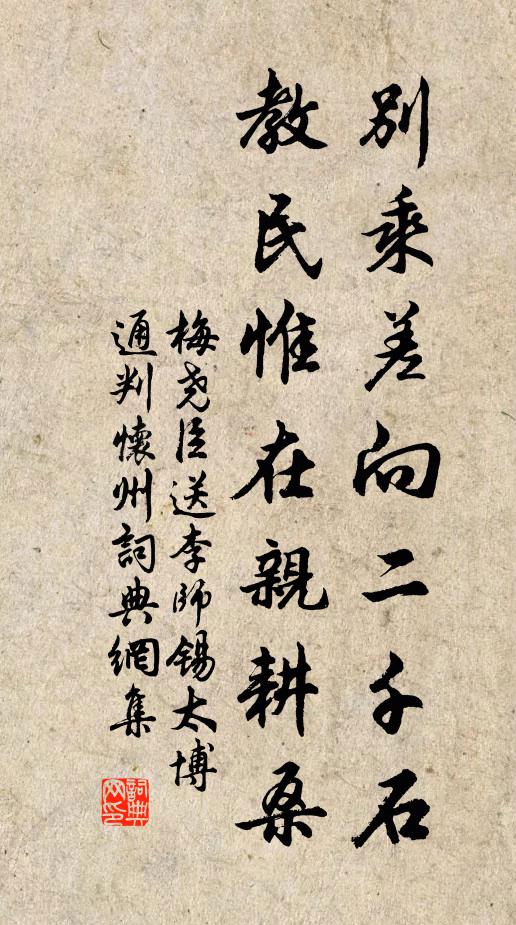 別乘差向二千石
教民惟在親耕桑
梅堯臣送李師錫太博
通判懷州詞典網集
詞典网印